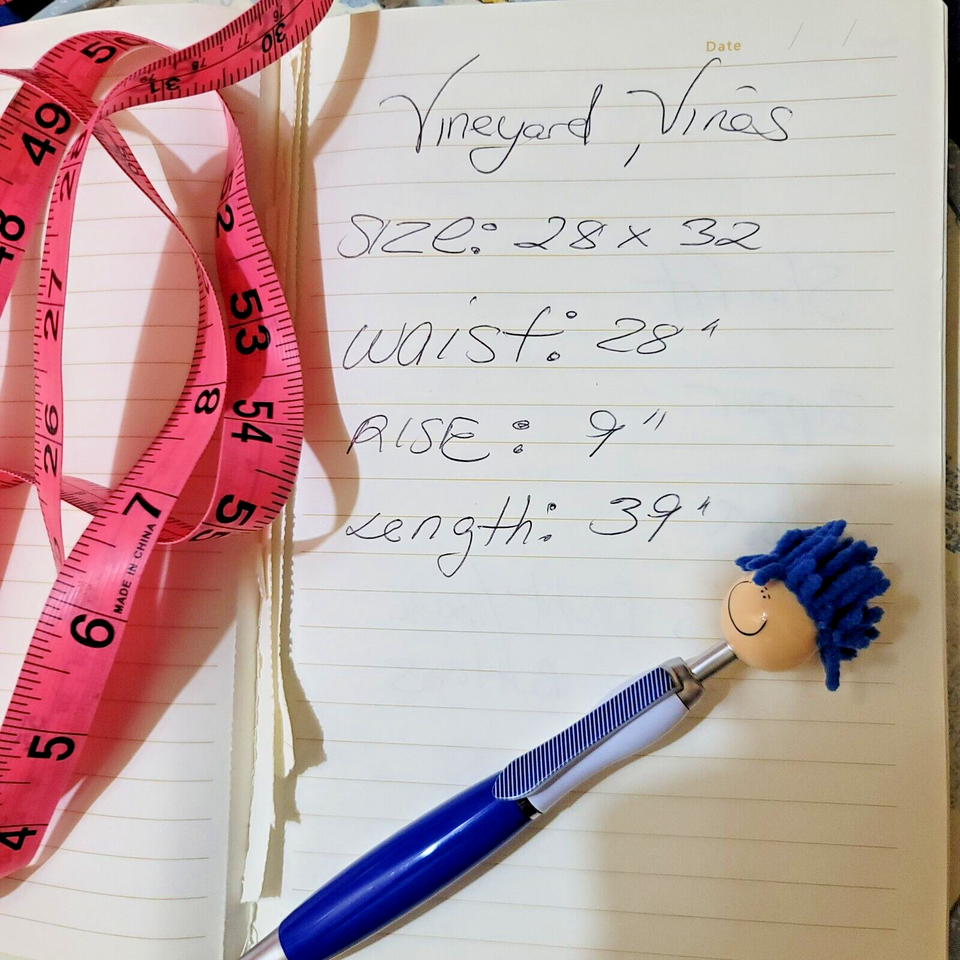 Date / /
Vineyard, Vinês
SIZE: 28 x 32
Waist: 28"
RISE: 9"
Length: 39"
50
49
48
31
30
78
77
76
28
27
26
52
53
54
55
8
7
MADE IN CHINA
6
5
4